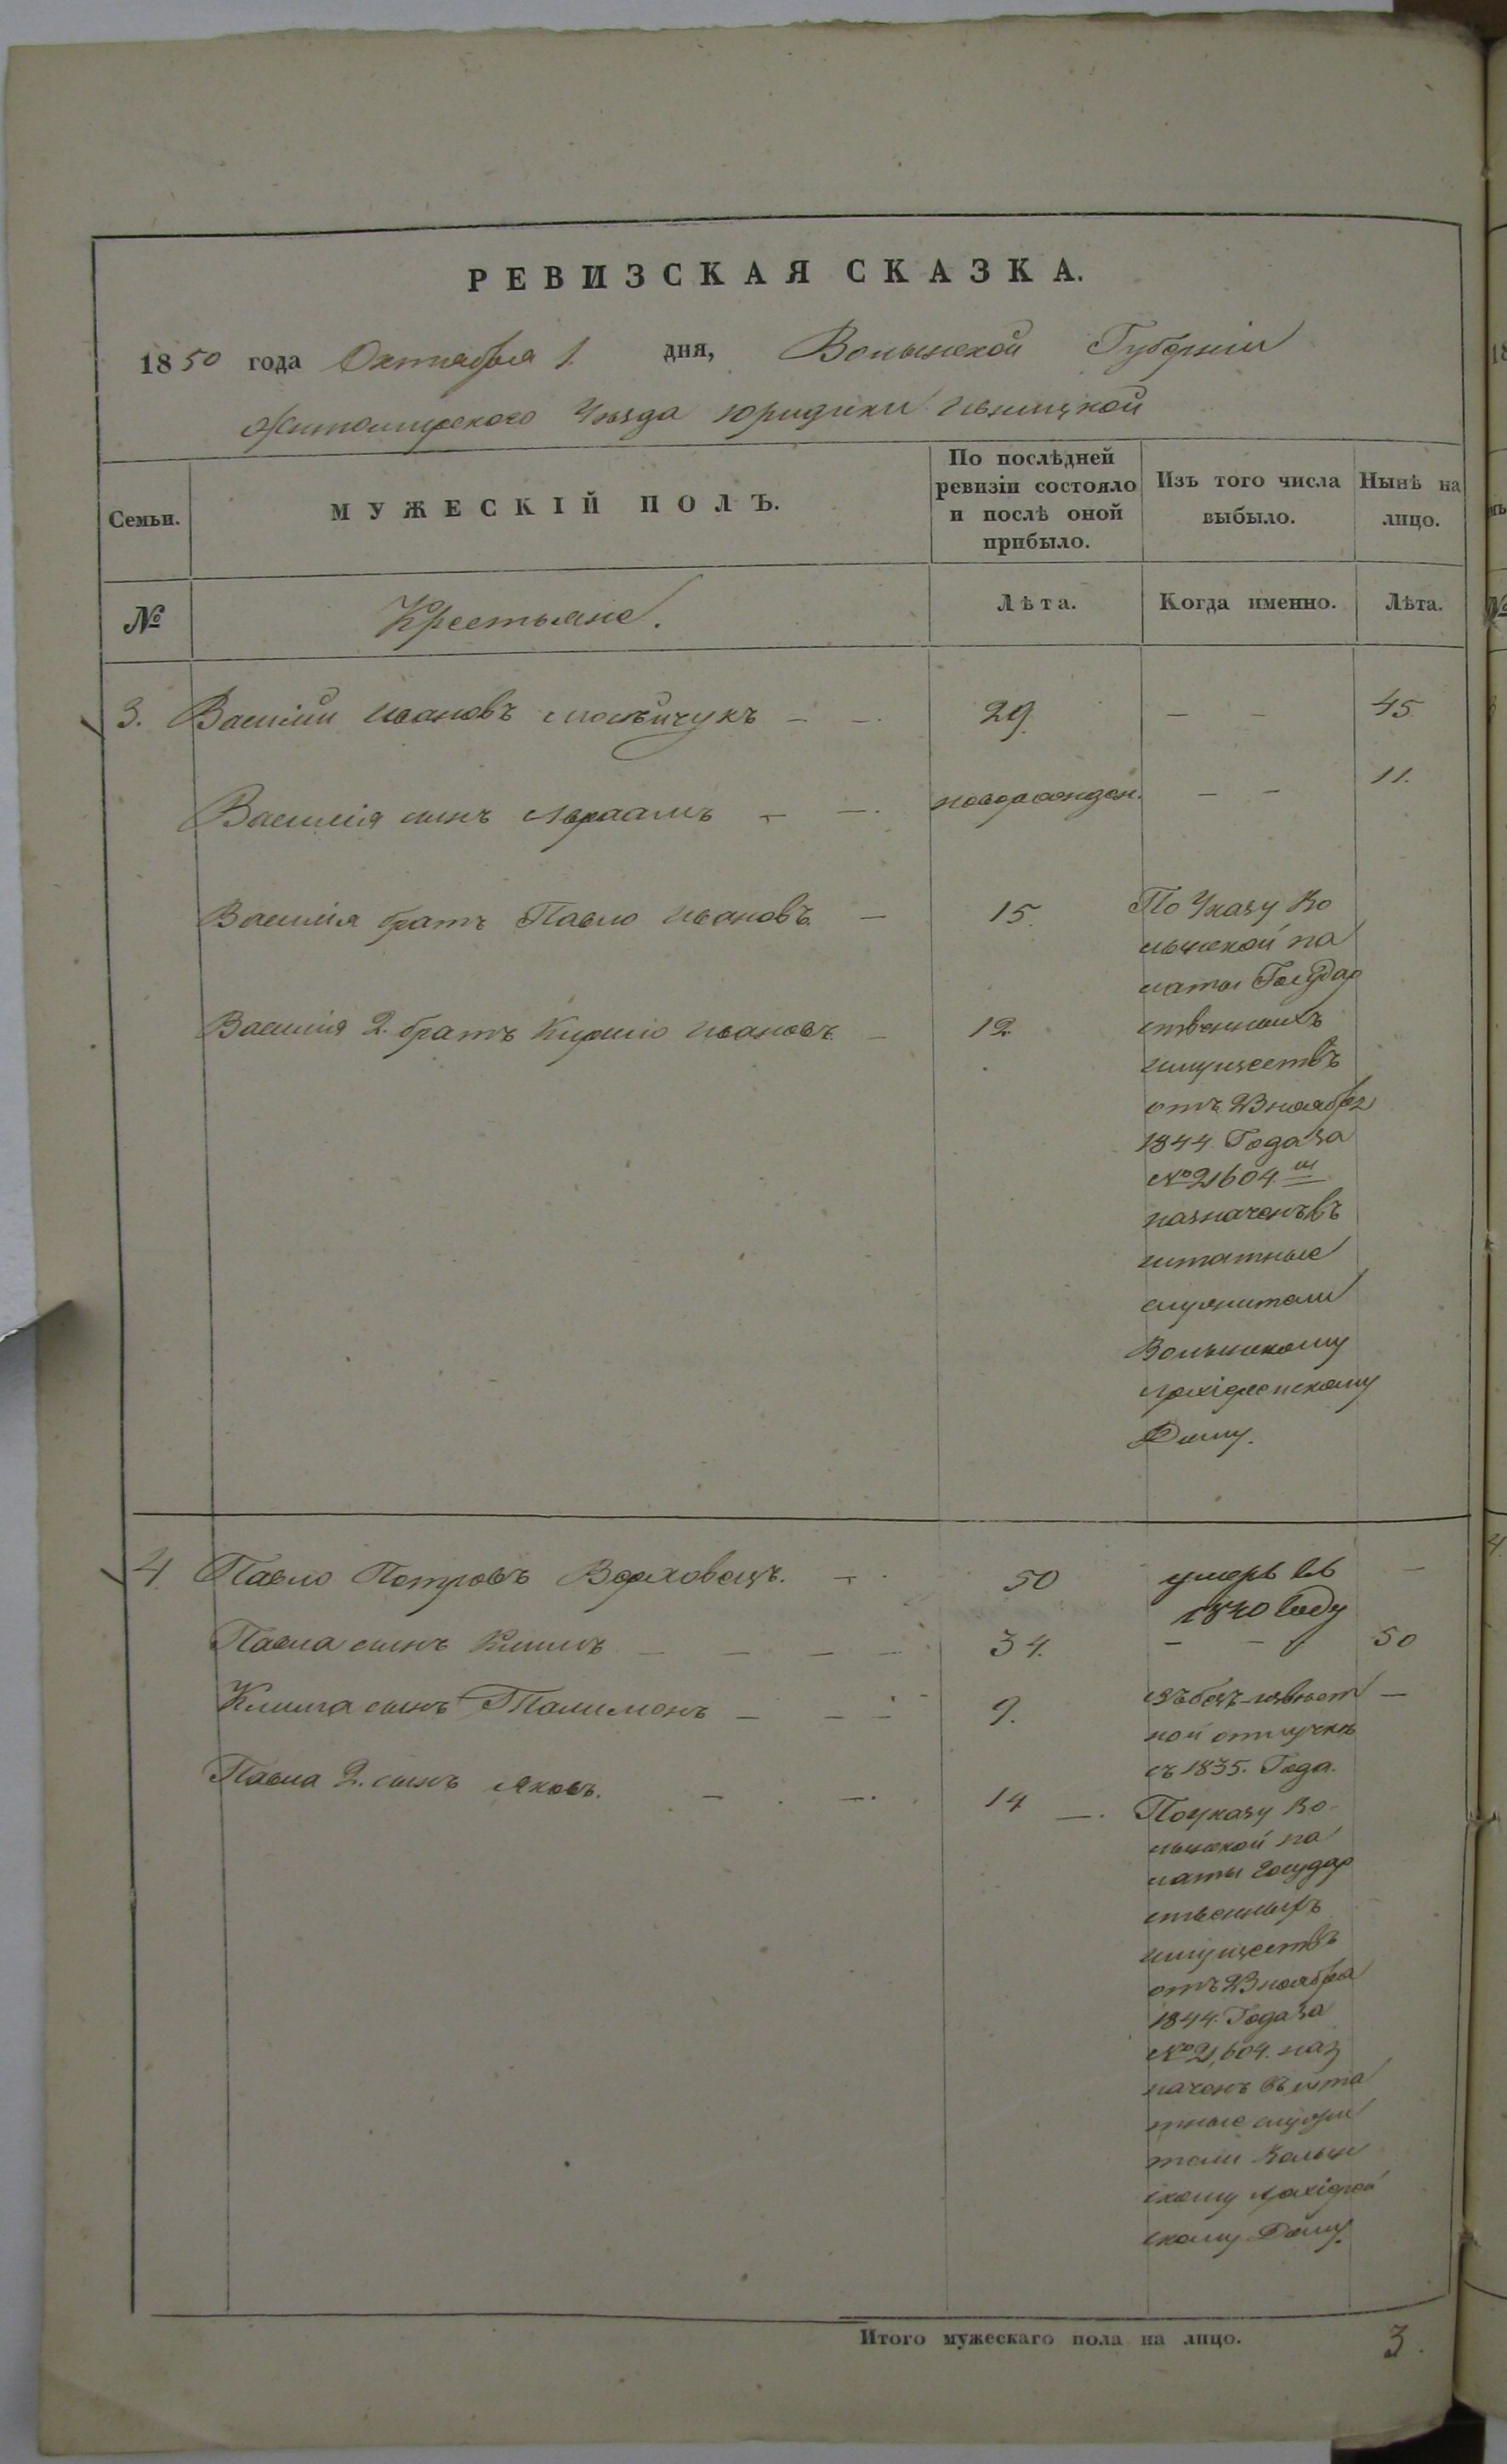 РЕВИЗСКАЯ СКАЗКА.
1850 года Октября 1. дня, Волынской Губерніи
Житомирского Уѣзда юридики
Семьи.
МУЖЕСКІЙ ПОЛЪ.
По послѣдней
ревизіи состояло
и послѣ оной
прибыло.
Изъ того числа
выбыло.
Нынѣ на
лицо.
№
Крестьяне.
Лѣта.
Когда именно.
Лѣта.
3. Василій Ивановъ — — 29. — — 45
Василія сынъ Авраамъ — — новорожден. — — 11.
Василія братъ Павло Ивановъ — 15.
Василія 2. братъ Кирило Ивановъ — 12
По Указу Во
лынской па
латы Государ
ственныхъ
имуществъ
отъ 23 ноября
1844 Года за
№ 21604 м
назначенъ въ
штатные
служители
Волынскому
Архіерейскому
Дому.
4. Павло Петровъ Верховецъ. — 50 умеръ въ —
1840 году
Павла сынъ Климъ — — — — 34. — — 50
Клима сынъ Талимонъ — — — 9. въ безъ-извѣст —
ной отлучкѣ
съ 1835. Года.
Павла 2. сынъ Яковъ. — — 14 —
По указу Во-
лынской па
латы Государ
ственныхъ
имуществъ
отъ 23 ноября
1844. Года за
№ 21,604. наз
наченъ въ шта
тные служи
тели Волын
скому Архіерей
скому Дому.
Итого мужескаго пола на лицо. 3.